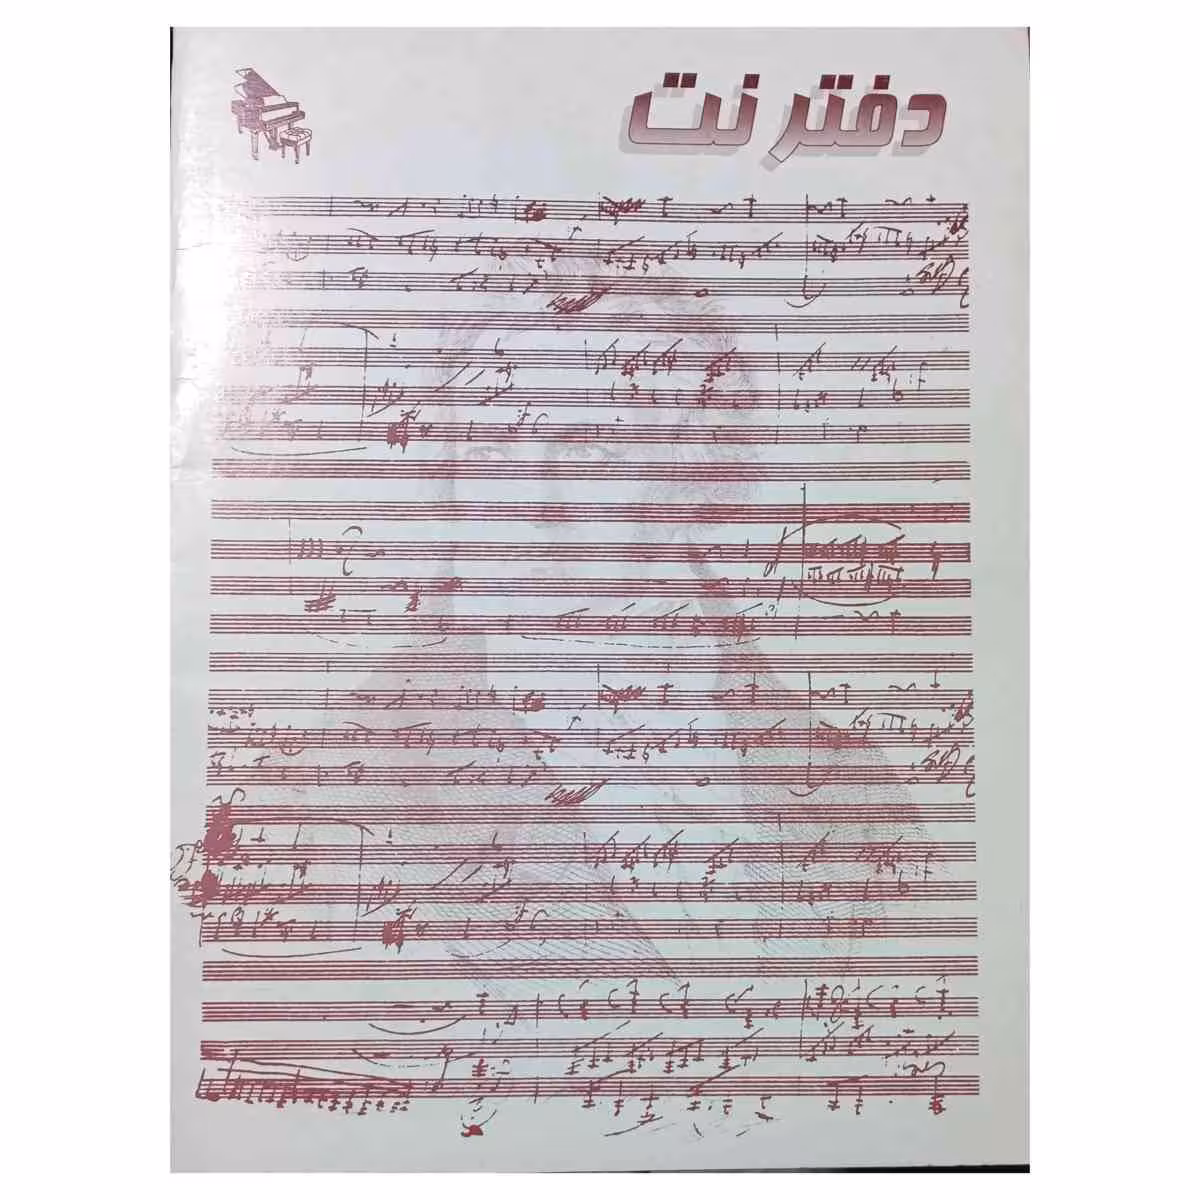 دفتر نت